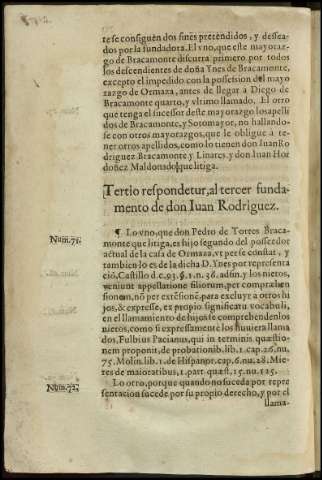 tese consiguẽn dos fines pretendidos, y dessea-
dos por la fundadora. El vno, que este mayoraz-
go de Bracamonte discurra primero por todos
los descendientes de doña Ynes de Bracamonte,
excepto el impedido con la possession del mayo
razgo de Ormaza, antes de llegar a Diego de
Bracamonte quarto, y vltimo llamado. El otro
que tenga el sucessor deste mayorazgo los apelli
dos de Bracamonte, y Sotomayor, no hallando-
se con otros mayorazgos, que le obligue a te-
ner otros apellidos, como lo tienen don Iuan Ro
driguez Bracamonte y Linares, y don Iuan Hor
doñez Maldonado que litiga.
Tertio respondetur, al tercer funda-
mento de don Iuan Rodriguez.
Num. 71.
¶ Lo vno, que don Pedro de Torres Braca-
monte que litiga, es hijo segundo del posseedor
actual de la casa de Ormaza, vt per se constat, y
tambien lo es de la dicha D. Ynes por representa
ció, Castillo d. c. 93. §. 1. n. 36. ad fin. y los nietos,
veniunt appellatione filiorum, per comprehen
sionem, nõ per extẽsionẽ, para excluyr a otros hi
jos, & expresse, ex propio significatu vocabuli,
en el llamamiento de hijos se comprehenden los
nietos, como si expressamente los huuiera llama
dos. Fulbius Pacianus, qui in terminis quæstio-
nem proponit, de probationib. lib. 1. cap. 26. nu.
75. Molin. lib. 1. de Hispanor. cap. 6. nu. 28. Mie-
res de maioratibus, 1. part. quæst. 15. nu. 125.
Num. 72.
Lo otro, porque quando no suceda por repre
sentacion sucede por su propio derecho, y por el
llama-